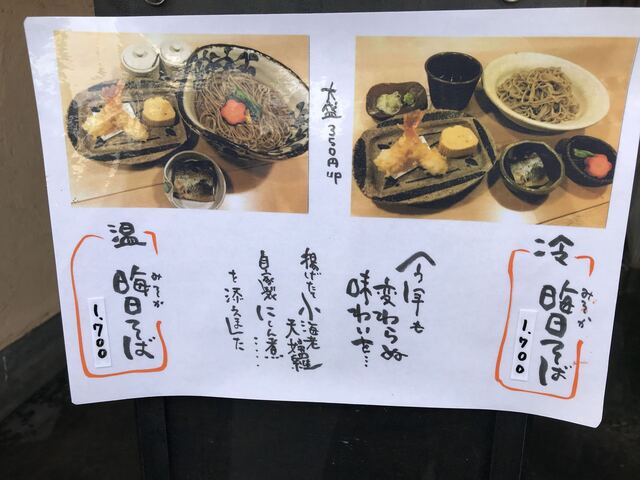 冷
みそか
晦日そば
1,700
今年も
変わらぬ
味わいを…
大盛350円up
揚げたて小海老
天婦羅
自家製にしん煮
を添えました
温
みそか
晦日そば
1,700